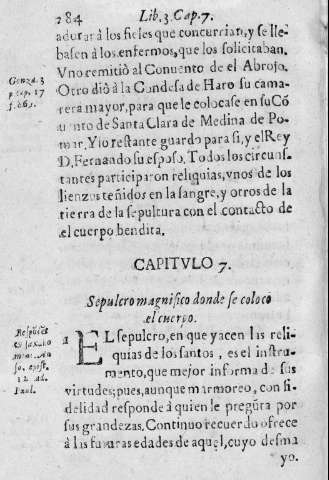 284 Lib. 3. Cap. 7.
adurar à los fieles que concurrian, y se lle-
basen à los enfermos, que los solicitaban.
Vno remitiò al Conuento de el Abrojo.
Otro diò à la Condesa de Haro su cama-
rera mayor, para que le colocase en su Cō
uento de Santa Clara de Medina de Po-
mar, Y lo restante guardo para si, y el Rey
D. Fernando su esposo. Todos los circuns-
tantes participaron reliquias, vnos de los
lienzos teñidos en la sangre, y otros de la
tierra de la sepultura con el contacto de
el cuerpo bendita.
Gonza. 3
p. cap. 17
CAPITVLO 7.
Sepulcro magnifico donde se coloco
el cuerpo.
1 EL sepulcro, en que yacen las reli-
quias de los santos, es el instru-
mento, que mejor informa de sus
virtudes; pues, aunque marmoreo, con fi-
delidad responde à quien le pregūta por
sus grandezas. Continuo recuerdo ofrece
à las futuras edades de aquel, cuyo desma
yo.
12. ad.
Paul.